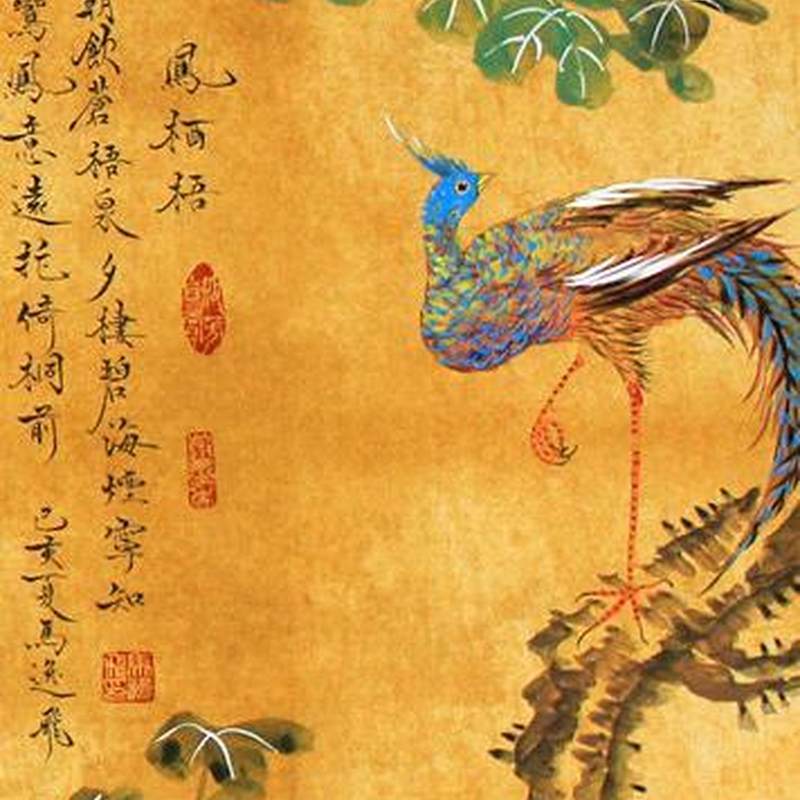 鳳栖梧
朝飲蒼梧泉夕棲碧海煙寧知
鸞鳳意遠托倚桐前 己亥夏馬逸飛